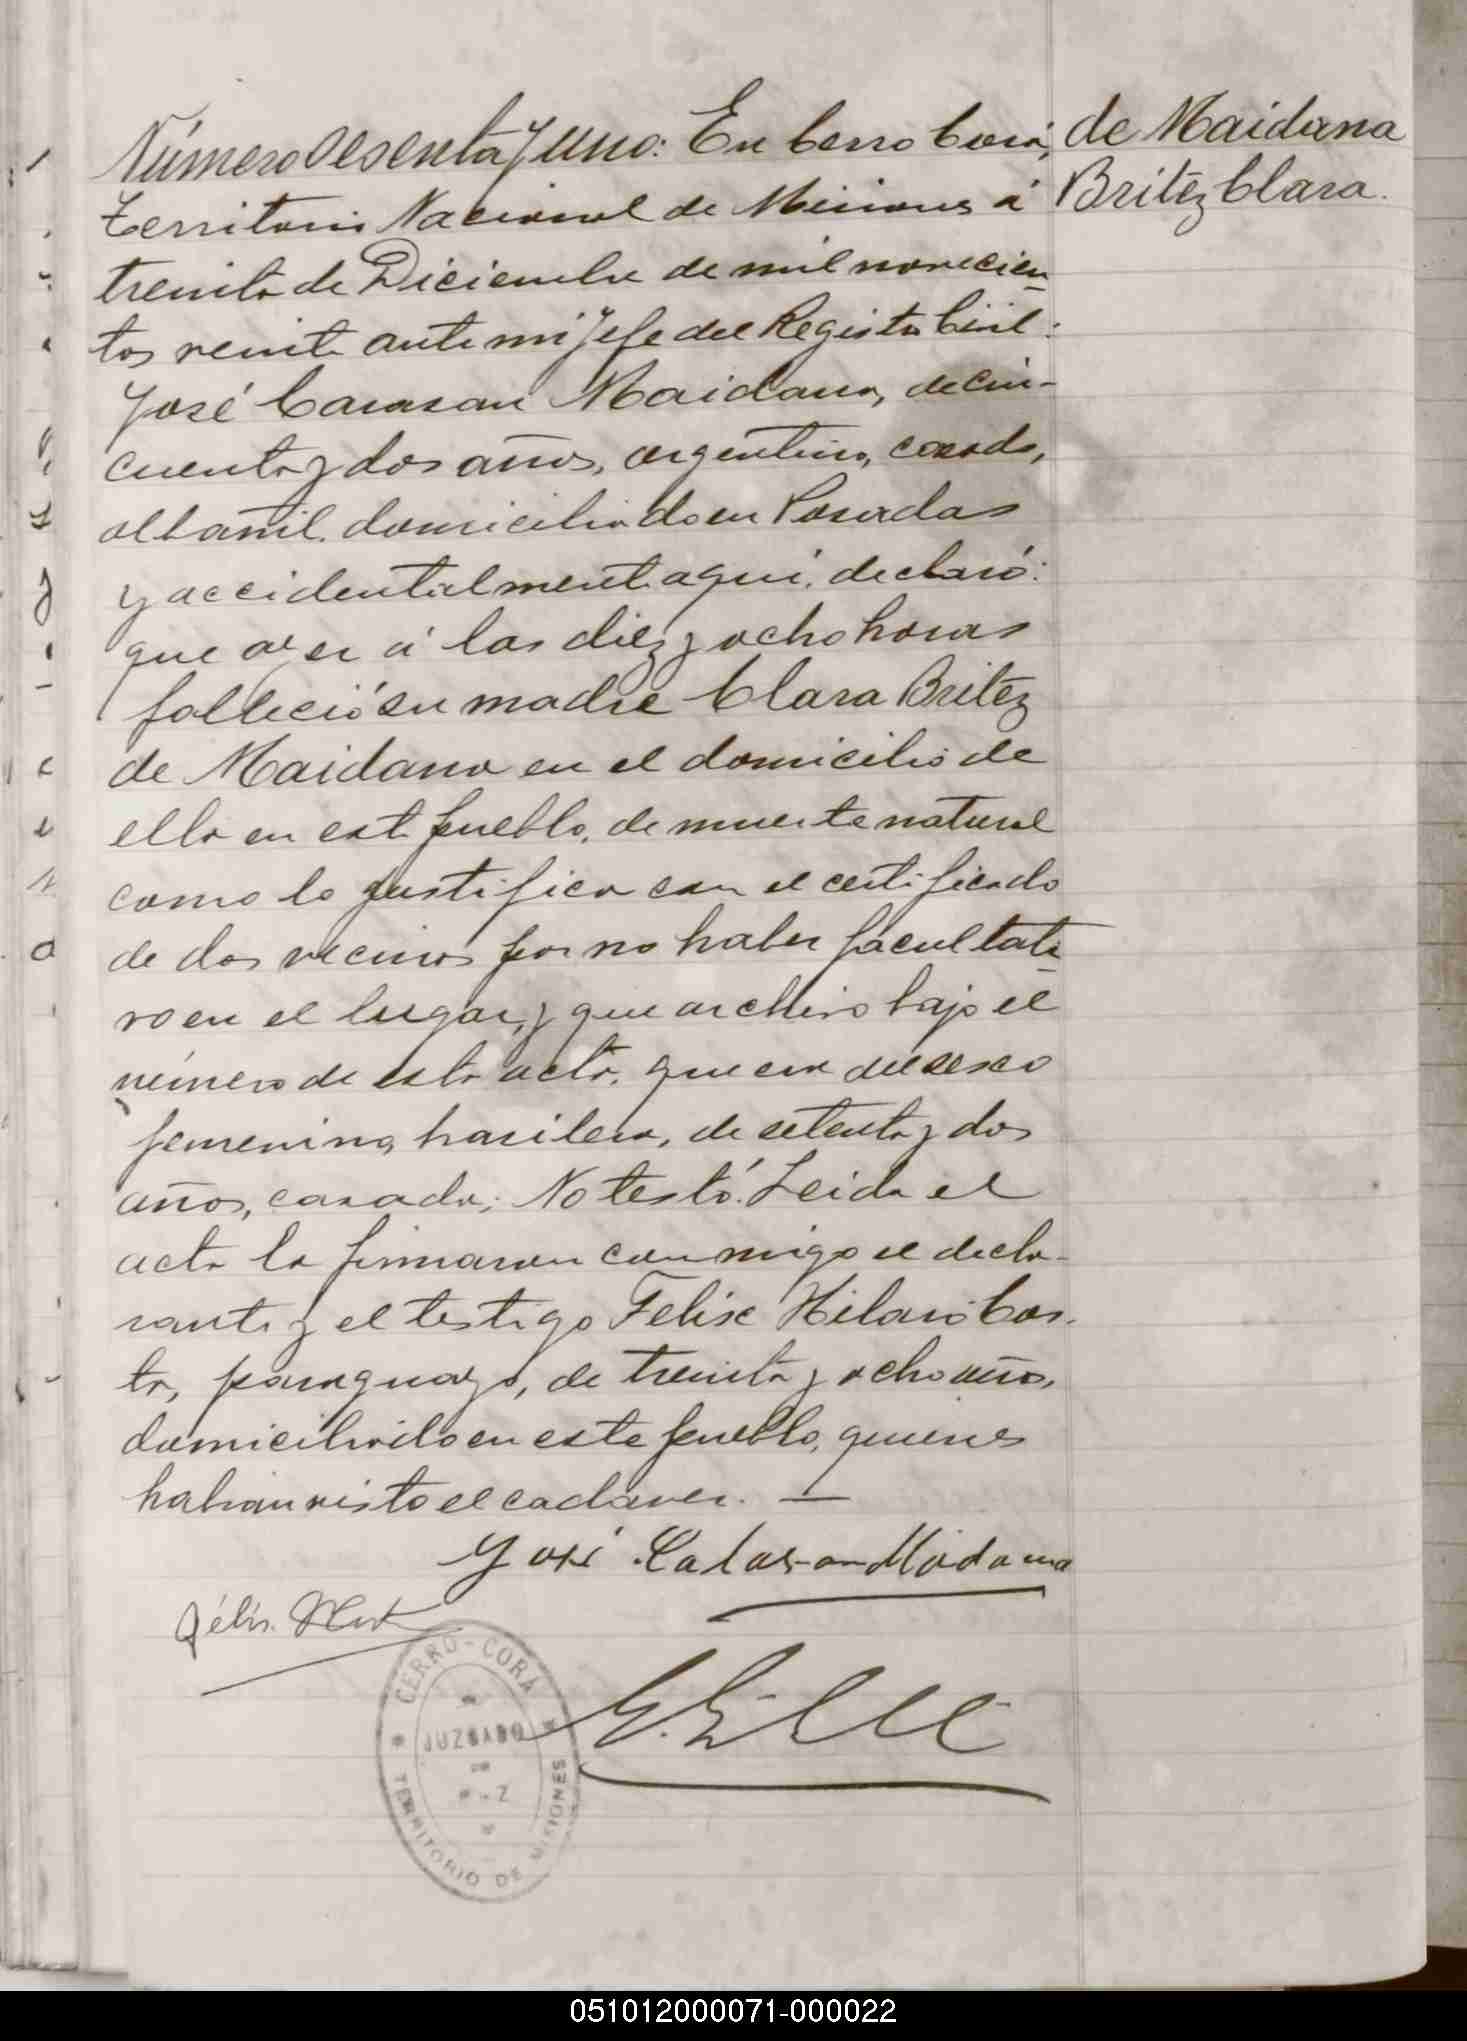 Número Sesenta y uno: En Cerro Corá,
de Maidana
Britez Clara.
Territorio Nacional de Misiones á
treinta de Diciembre de mil novecien
tos veinte ante mi Jefe del Registro Civil:
José Carasan Maidana, de cin-
cuenta y dos años, argentino, casado,
albañil, domiciliado en Posadas
y accidentalmente aquí, declaró:
que ayer á las diez y ocho horas
falleció su madre Clara Britez
de Maidana en el domicilio de
ella en este pueblo, de muerte natural
como lo justifica con el certificado
de dos vecinos por no haber facultati
vo en el lugar, y que archivo bajo el
número de esta acta, que era del sexo
femenino, brasilera, de setenta y dos
años, casada; No testó. Leida el
acta la firmaron conmigo el decla-
rante y el testigo Felix Hilario Cos-
ta, paraguayo, de treinta y ocho años,
domiciliado en este pueblo, quienes
habian visto el cadaver. —
José Calasan Maidana
Félix
CERRO-CORÁ
JUZGADO
DE
TERRITORIO DE MISIONES
051012000071-000022